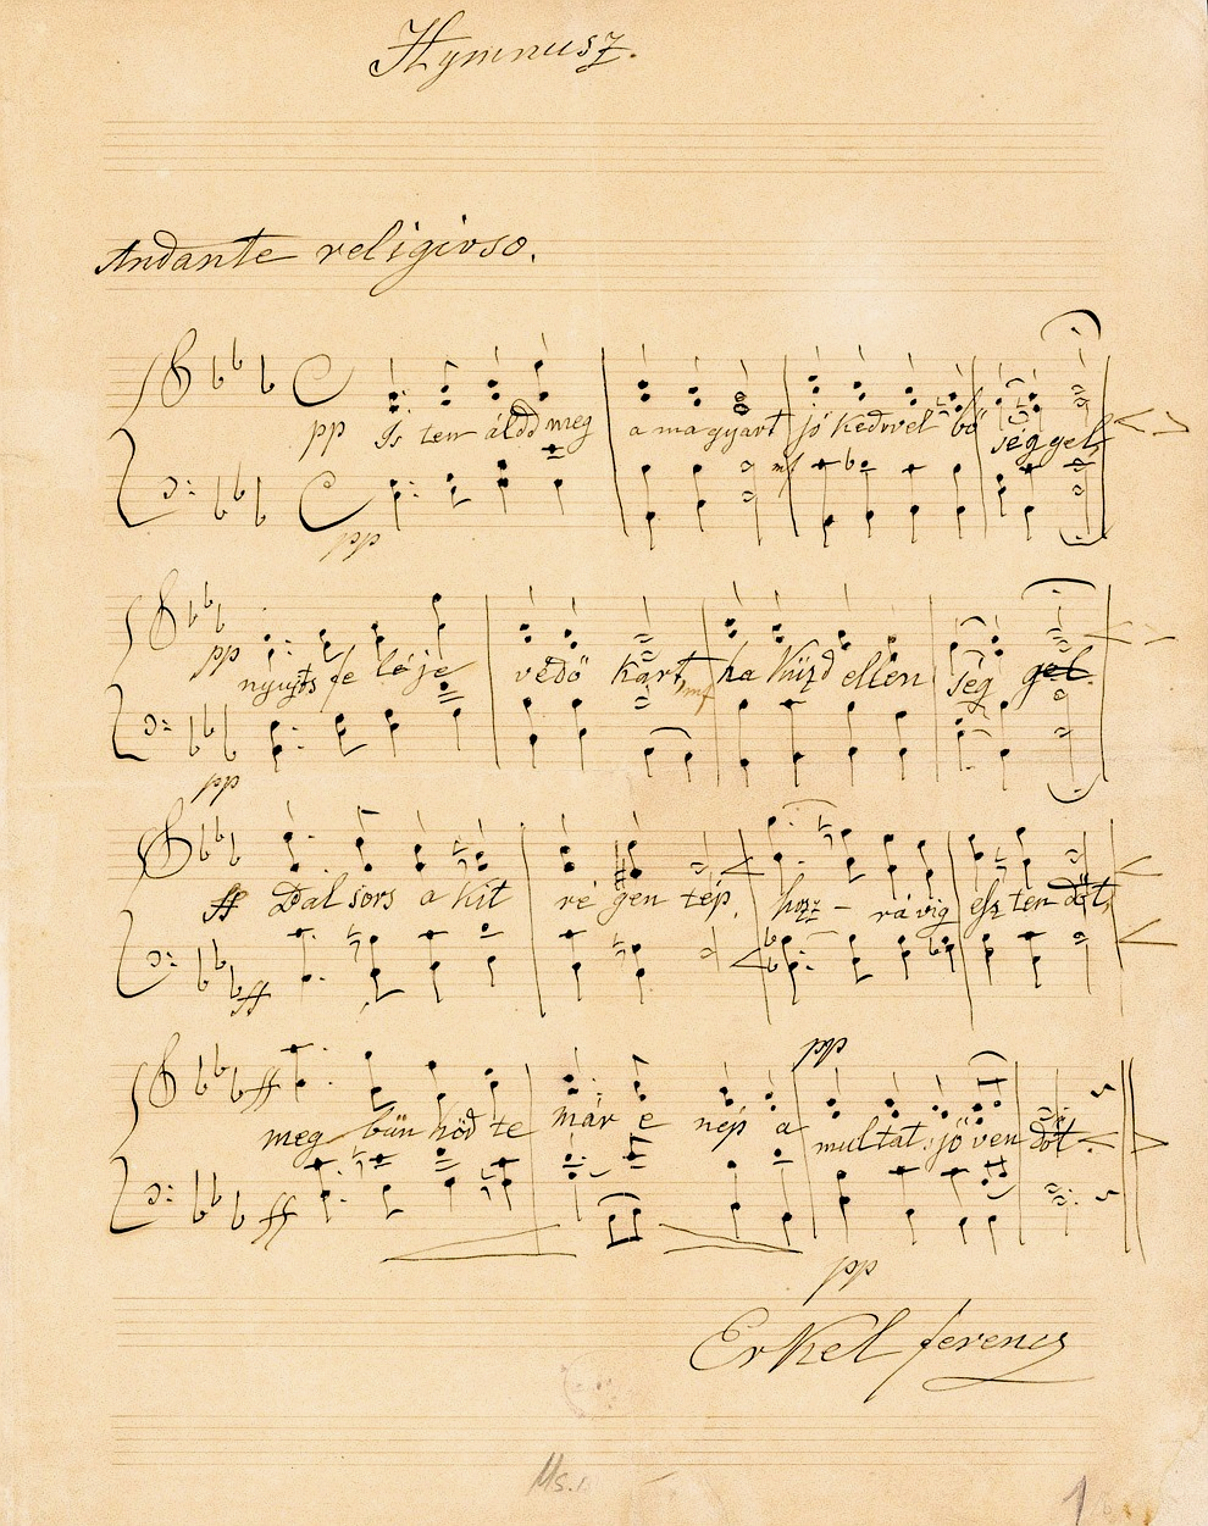 Hymnusz.
Andante religioso.
pp Is ten áldd meg a magyart jó kedvvel bő séggel,
mf
pp
pp nyujts fe léje védő kart, mf ha küzd ellen ség gel.
pp
ff Bal sors a kit ré gen tép, hozz – rá vig esz ten dőt,
ff
pp
ff meg bün höd te már e nép a multat s jö ven dőt.
ff
pp
Erkel Ferencz
Ms.
1